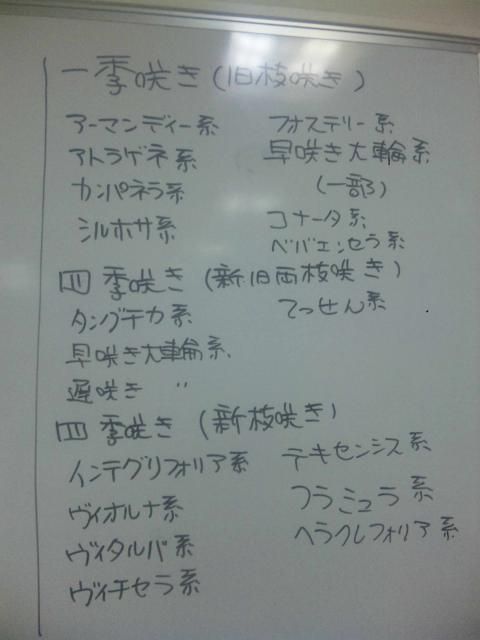 一季咲き(旧枝咲き)
アーマンディー系
アトラゲネ系
カンパネラ系
シルホサ系
フォステリー系
早咲き大輪系
(一部)
コナータ系
ベバエンセラ系
四季咲き(新旧両枝咲き)
タングチカ系
早咲き大輪系
遅咲き 〃
てっせん系
四季咲き(新枝咲き)
インテグリフォリア系
ヴィオルナ系
ヴィタルバ系
ヴィチセラ系
テキセンシス系
フラミュラ系
ヘラクレフォリア系